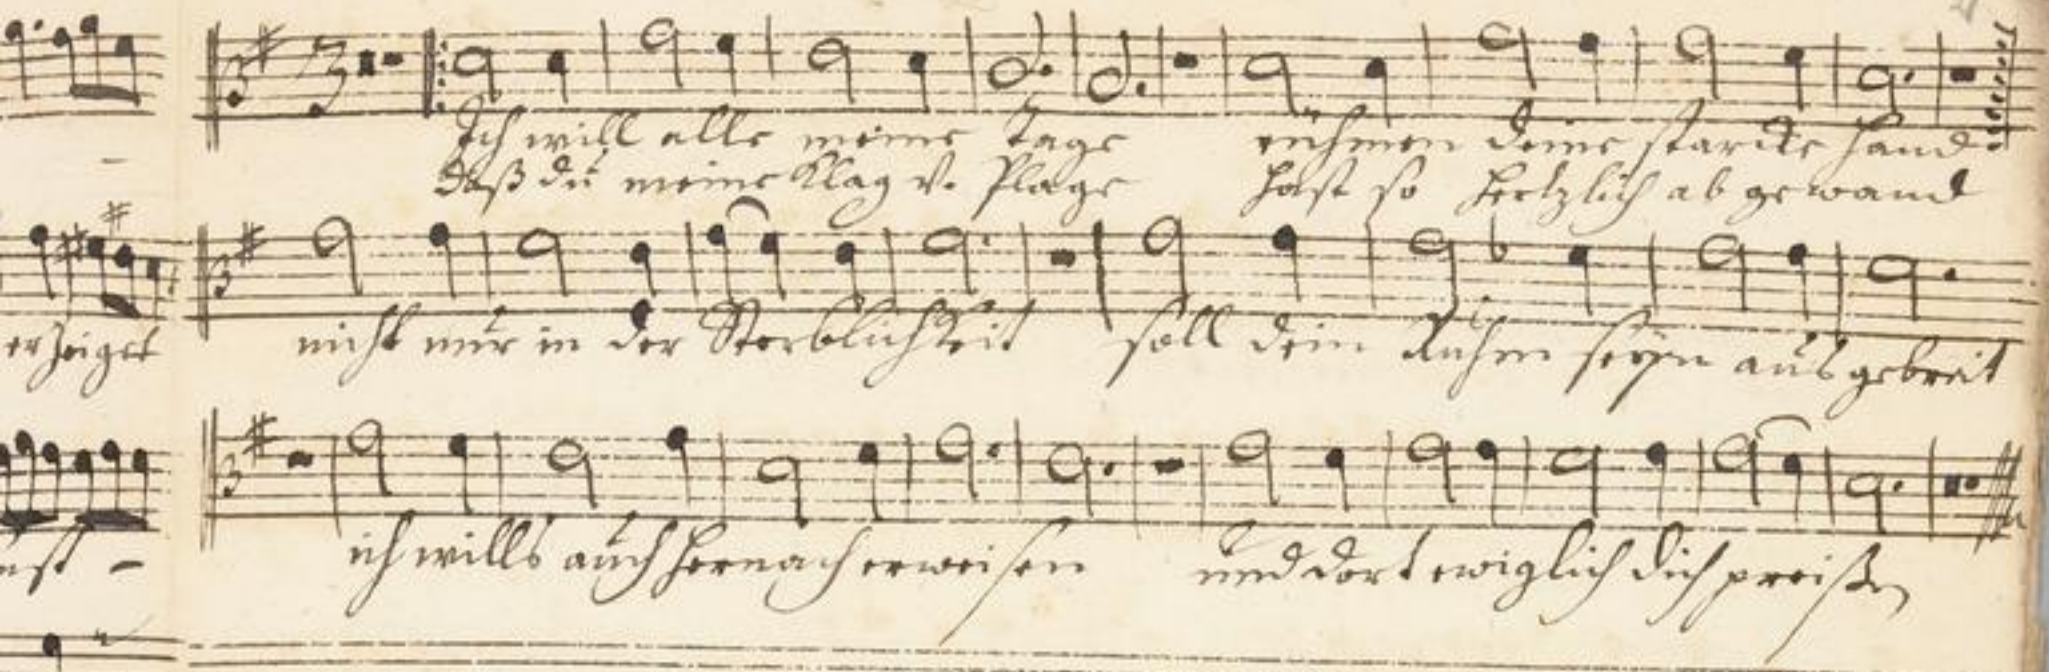 Ich will alle meine tage rühmen deine starcke hand
daß du meine Klag v. Plage hast so hertzlich ab gewand
erzeiget nicht nur in der Sterblichkeit soll dein Ruhm seyn aus gebreit
ich wills auch hernach erweisen und dort ewiglich dich preißen